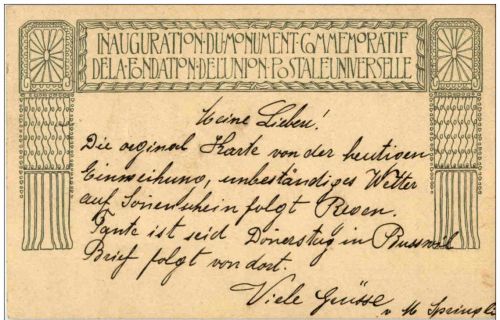 INAUGURATION·DU·MONUMENT·COMMEMORATIF
DE·LA·FONDATION·DE·L'UNION·POSTALE·UNIVERSELLE
Meine Lieben!
Die orginal Karte von der heutigen
Einweihung, unbeständiges Wetter
auf Sonenschein folgt Regen.
Tante ist seid Donerstag in Busswil
Brief folgt von dort.
Viele Grüsse
v M